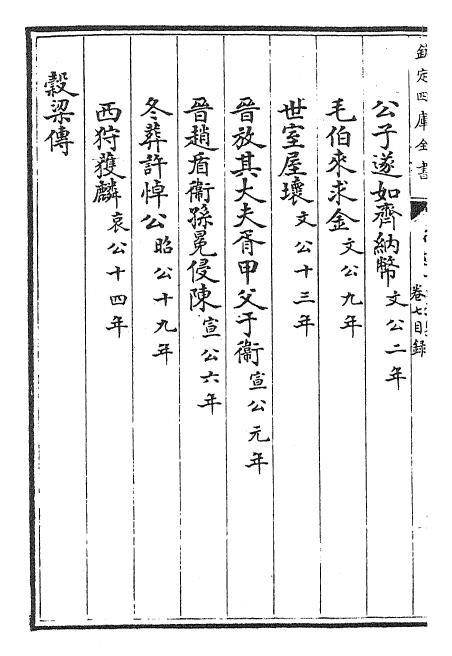 欽定四庫全書
卷七目録
公子遂如齊納幣文公二年
毛伯來求金文公九年
世室屋壞文公十三年
晉放其大夫胥甲父于衞宣公元年
晉趙盾衞孫免侵陳宣公六年
冬葬許悼公昭公十九年
西狩獲麟哀公十四年
穀梁傳